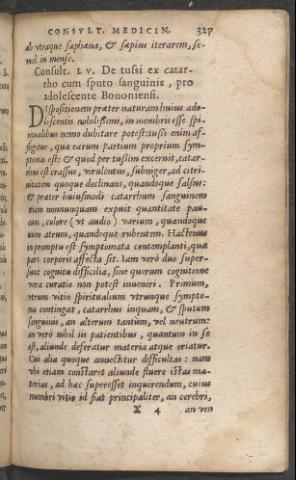 CONSVLT. MEDICIN. 327
ab vtraque saphæna, & sæpius iterarem, se-
mel in mense.
Consult. LV. De tussi ex catar-
rho cum sputo sanguinis, pro
adolescente Bononiensi.
DIspositionem præter naturam huius ado-
lescentis nobilissimi, in membris esse spi-
ritualibus nemo dubitare potest: tussi enim af-
fligitur, quæ earum partium proprium sym-
ptoma est: & quod per tussim excernit, catar-
rhus est crassus, virulentus, subniger, ad citri-
nitatem quoque declinans, quandoque salsus:
& præter huiusmodi catarrhum sanguinem
etiam nonnunquam expuit quantitate pau-
cum, colore (vt audio) varium, quandoque
enim atrum, quandoque rubentem. Hactenus
in promptu est symptomata contemplanti, quæ
pars corporis affecta sit. Iam verò duo super-
sunt cognitu difficilia, sine quorum cognitione
vera curatio non potest inueniri. Primum,
vtrum vitio spiritualium vtrunque sympto-
ma contingat, catarrhus inquam, & sputum
sanguinis, an alterum tantùm, vel neutrum:
an verò nihil in patientibus, quantum in se
est, aliunde deferatur materia atque oriatur.
Cui alia quoque annectitur difficultas: nam
vbi etiam constaret aliunde fluere istas ma-
terias, ad hac superesset inquirendum, cuius
membri vitio id fiat principaliter, an cerebri,
X 4 an ven